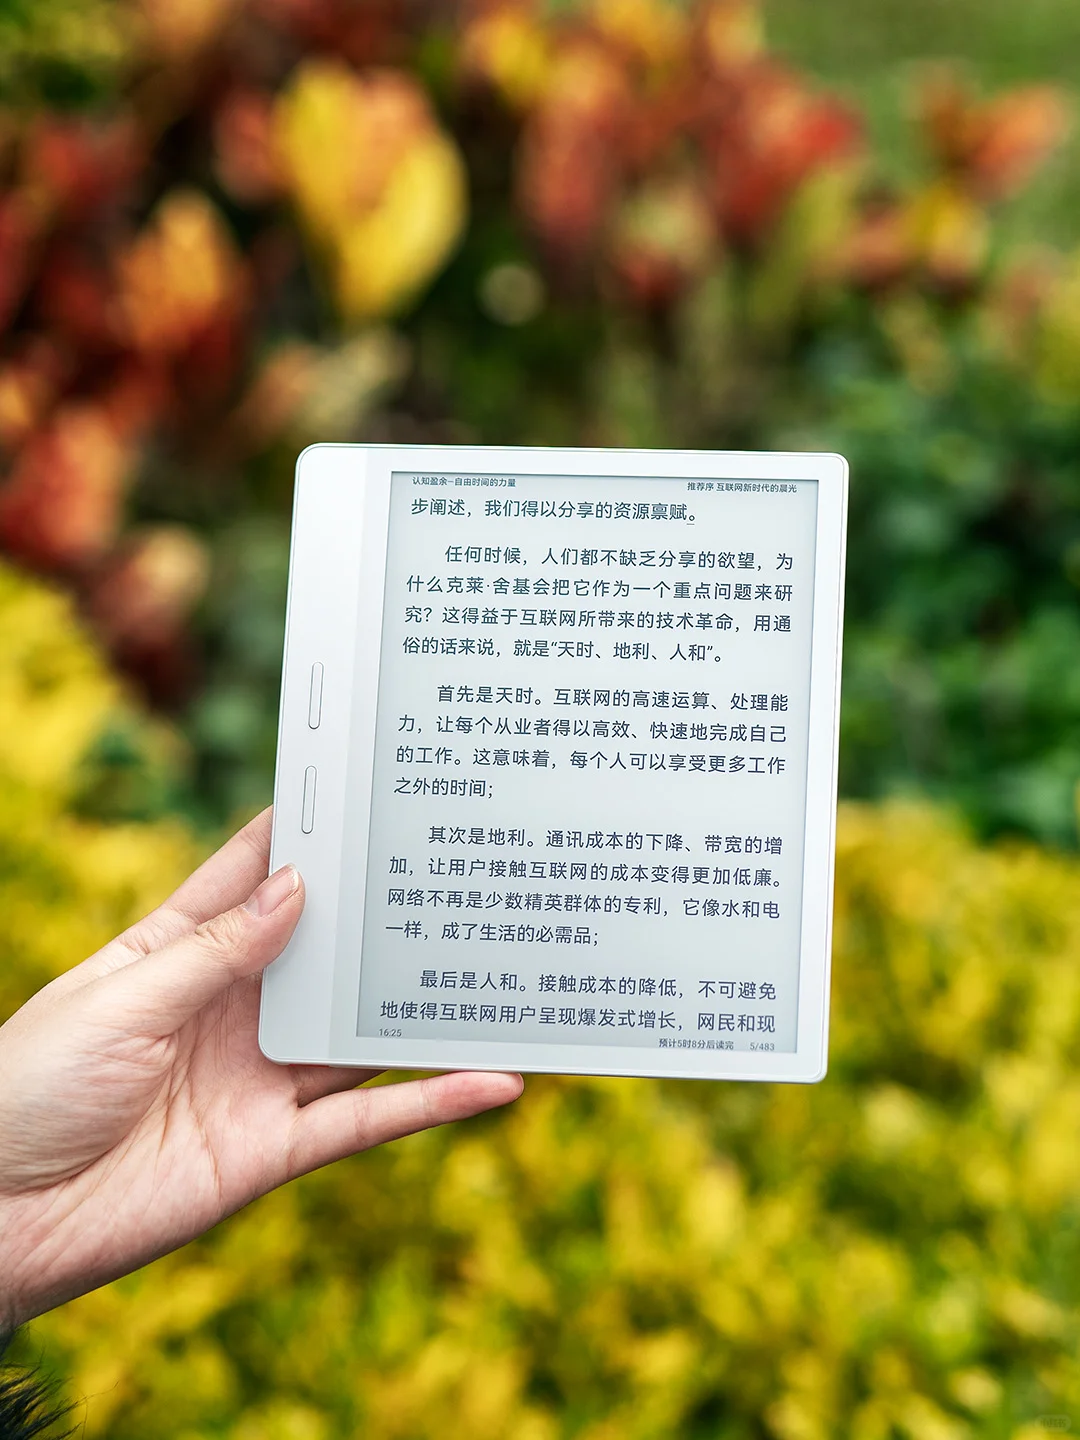 认知盈余—自由时间的力量
推荐序 互联网新时代的晨光
步阐述，我们得以分享的资源禀赋。
任何时候，人们都不缺乏分享的欲望，为
什么克莱·舍基会把它作为一个重点问题来研
究？这得益于互联网所带来的技术革命，用通
俗的话来说，就是“天时、地利、人和”。
首先是天时。互联网的高速运算、处理能
力，让每个从业者得以高效、快速地完成自己
的工作。这意味着，每个人可以享受更多工作
之外的时间；
其次是地利。通讯成本的下降、带宽的增
加，让用户接触互联网的成本变得更加低廉。
网络不再是少数精英群体的专利，它像水和电
一样，成了生活的必需品；
最后是人和。接触成本的降低，不可避免
地使得互联网用户呈现爆发式增长，网民和现
16:25
预计5时8分后读完 5/483